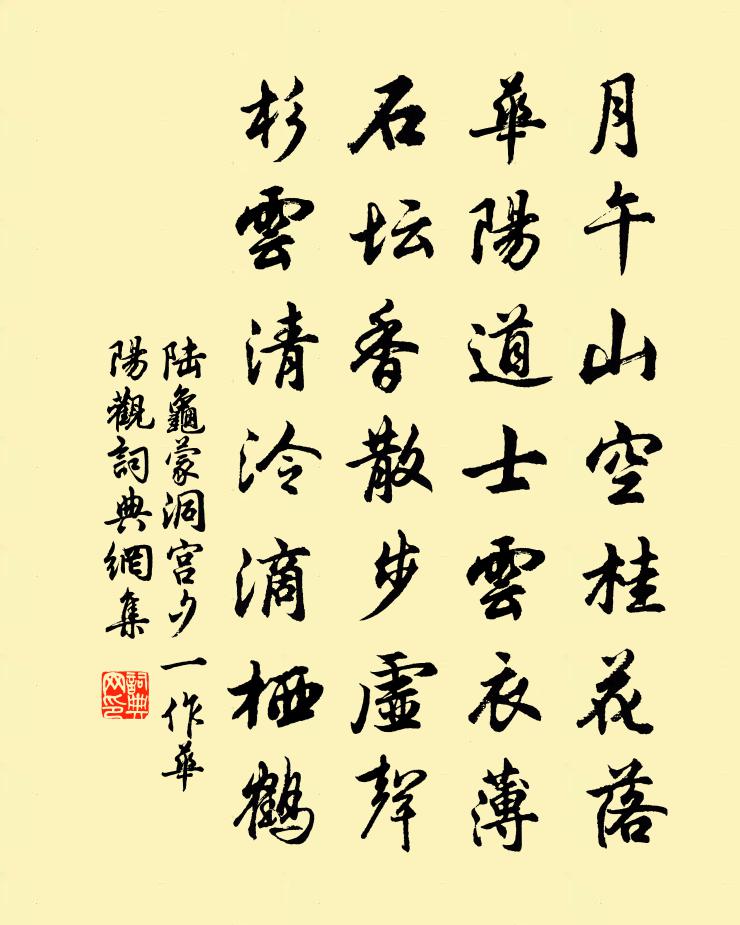 月午山空桂花落
華陽道士雲衣薄
石坛香散步虛聲
杉雲清泠滴栖鶴
陆龜蒙洞宫夕一作華
陽觀詞典網集
詞典网印